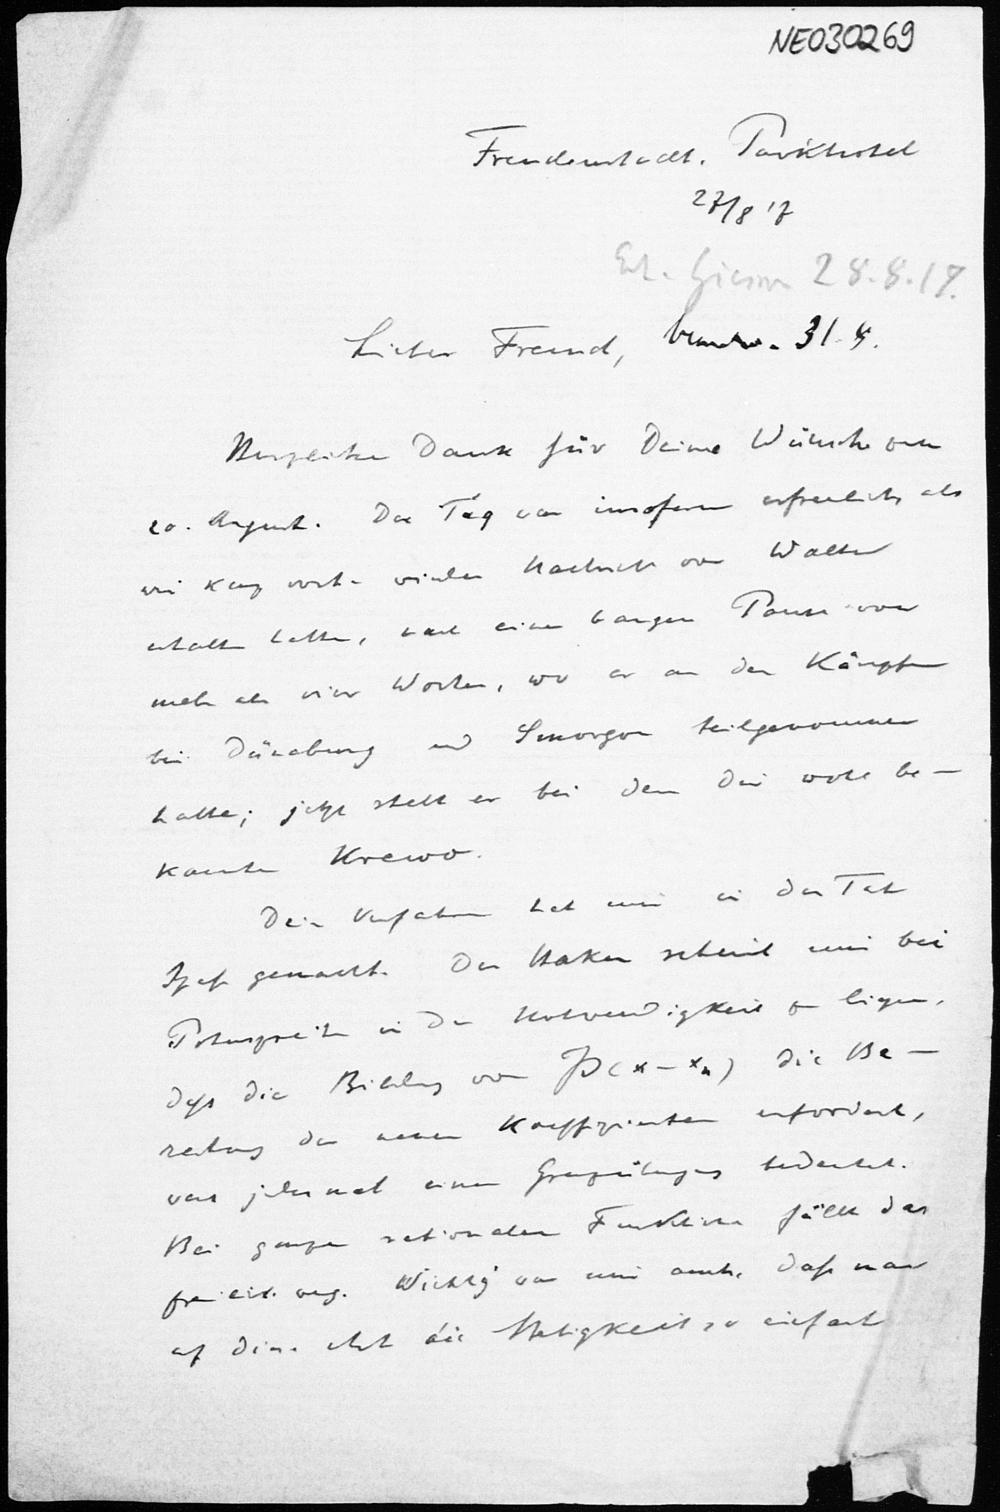 NE030269
Freudenstadt. Parkhotel
27/8 '17
28.8.17.
Lieber Freund, 31.8.
Herzlichen Dank für Deine Wünsche vom
20. August. Der Tag war insofern erfreulich, als
wir kurz vorher wieder Nachricht von Walter
erhalten hatten, nach einer bangen Pause von
mehr als vier Wochen, wo er an den Kämpfen
bei Dünaburg und Smorgon teilgenommen
hatte; jetzt steht er bei dem Dir wohl be-
kannten Krewo.
Dein Verfahren hat mir in der Tat
Spaß gemacht. Der Haken scheint mir bei
Potenzreihen in der Notwendigkeit zu liegen,
daß die Bildung von P(x-xₙ) die Be-
rechnung der neuen Koeffizienten erfordert,
was jedesmal einen Grenzübergang bedeutet.
Bei ganzen rationalen Funktionen fällt das
freilich weg. Wichtig war mir auch, daß man
auf diese Art die Stetigkeit so einfach